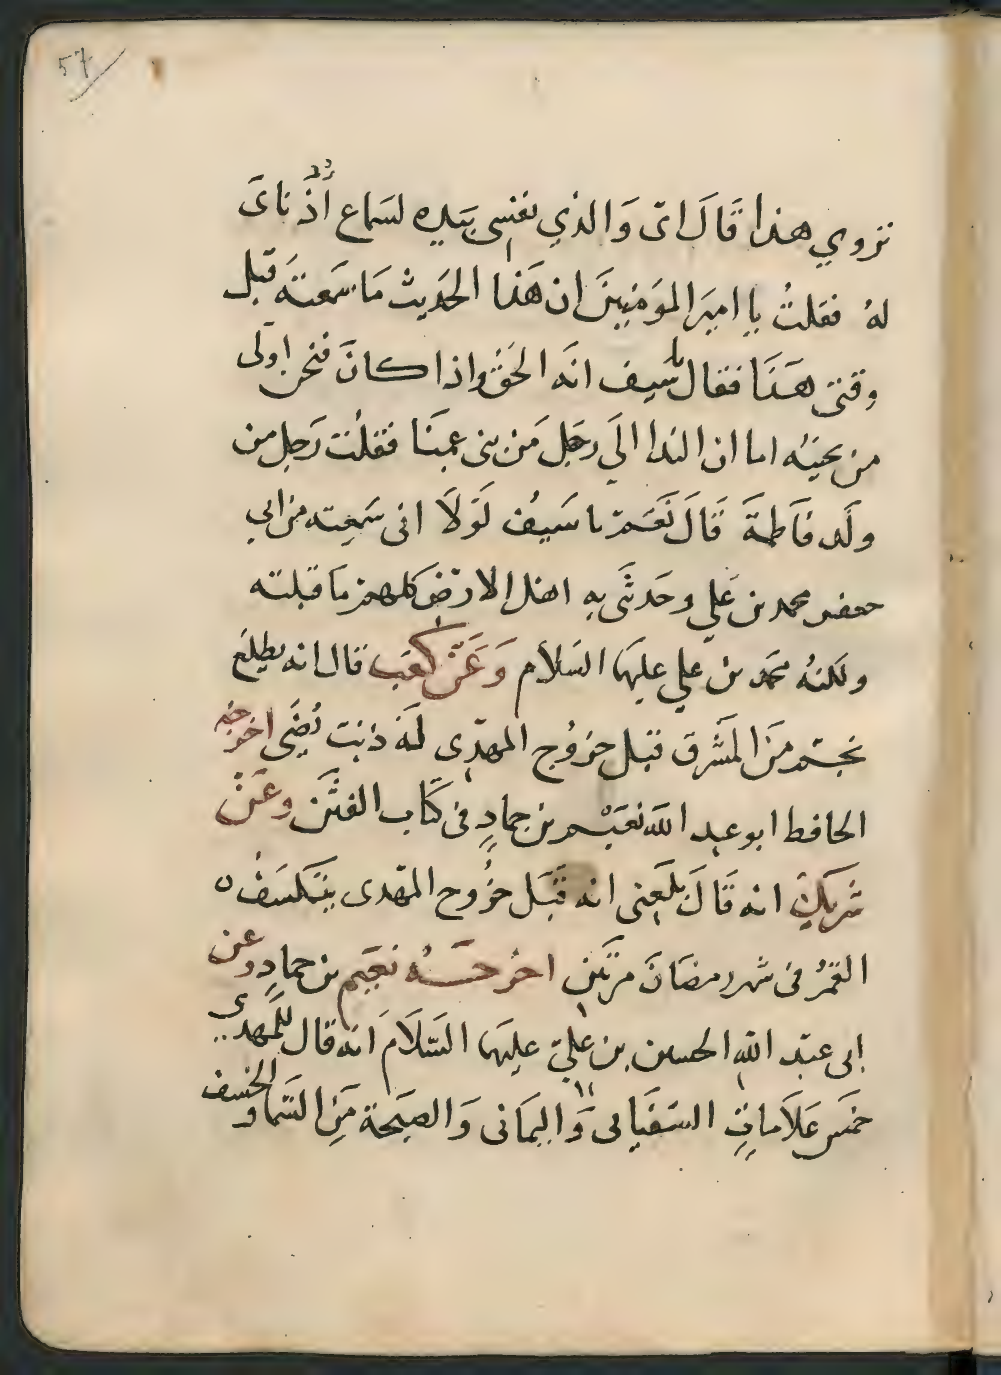 57
تروي هذا قَالَ اىّ وَالذي نفسى بيَده لسَماع أُذُناىَ
لهُ فقلتُ يا اميَر الموَمنِينَ ان هَذا الحَديث مَا سَمعتهَ قبل
وقتى هَذَا فقال يا سَيف انهَ الحَق واذا كانَ فنحن اوَلى
من يجيبُه اما ان الندا الىَ رجَل مَن بنى عمِنَا فقلُت رَجل من
ولَد فاَطمةَ قَالَ نَعَم يا سَيفُ لَولاَ انى سَمِعته من ابى
جعفر محمد بن عَلي وحَدثَنى به اهل الارَض كلهم مَا قبلته
ولكنهُ محمَد بن علي عليهَا السَلام وَعَنّ كَعب قال انه يطلعَ
نجم مَن المَشَرق قبل خروُج المهدّى لهَ ذنب يُضىَ اخرجه
الحافظ ابو عبد اللهَ نعَيْم بن حمادٍ فى كَتاب الفتَن وعَنْ
شَريكٍ انه قَالَ بلغَنى انه قَبَل خرُوح المهَدى ينكسَفُ
القَمرُ فى شهر رمضَانَ مرتَين اخرَجَهُ نعَيم بن حمادٍ وعن
ابى عبَد اللهِ الحسين بن علّي عليهَا السَّلاَمَ انه قال للمَهدي
خمَس عَلاَماتٍ السّفَيانى وَاليمَانى وَالصيَحة مَن السَّما والخسف